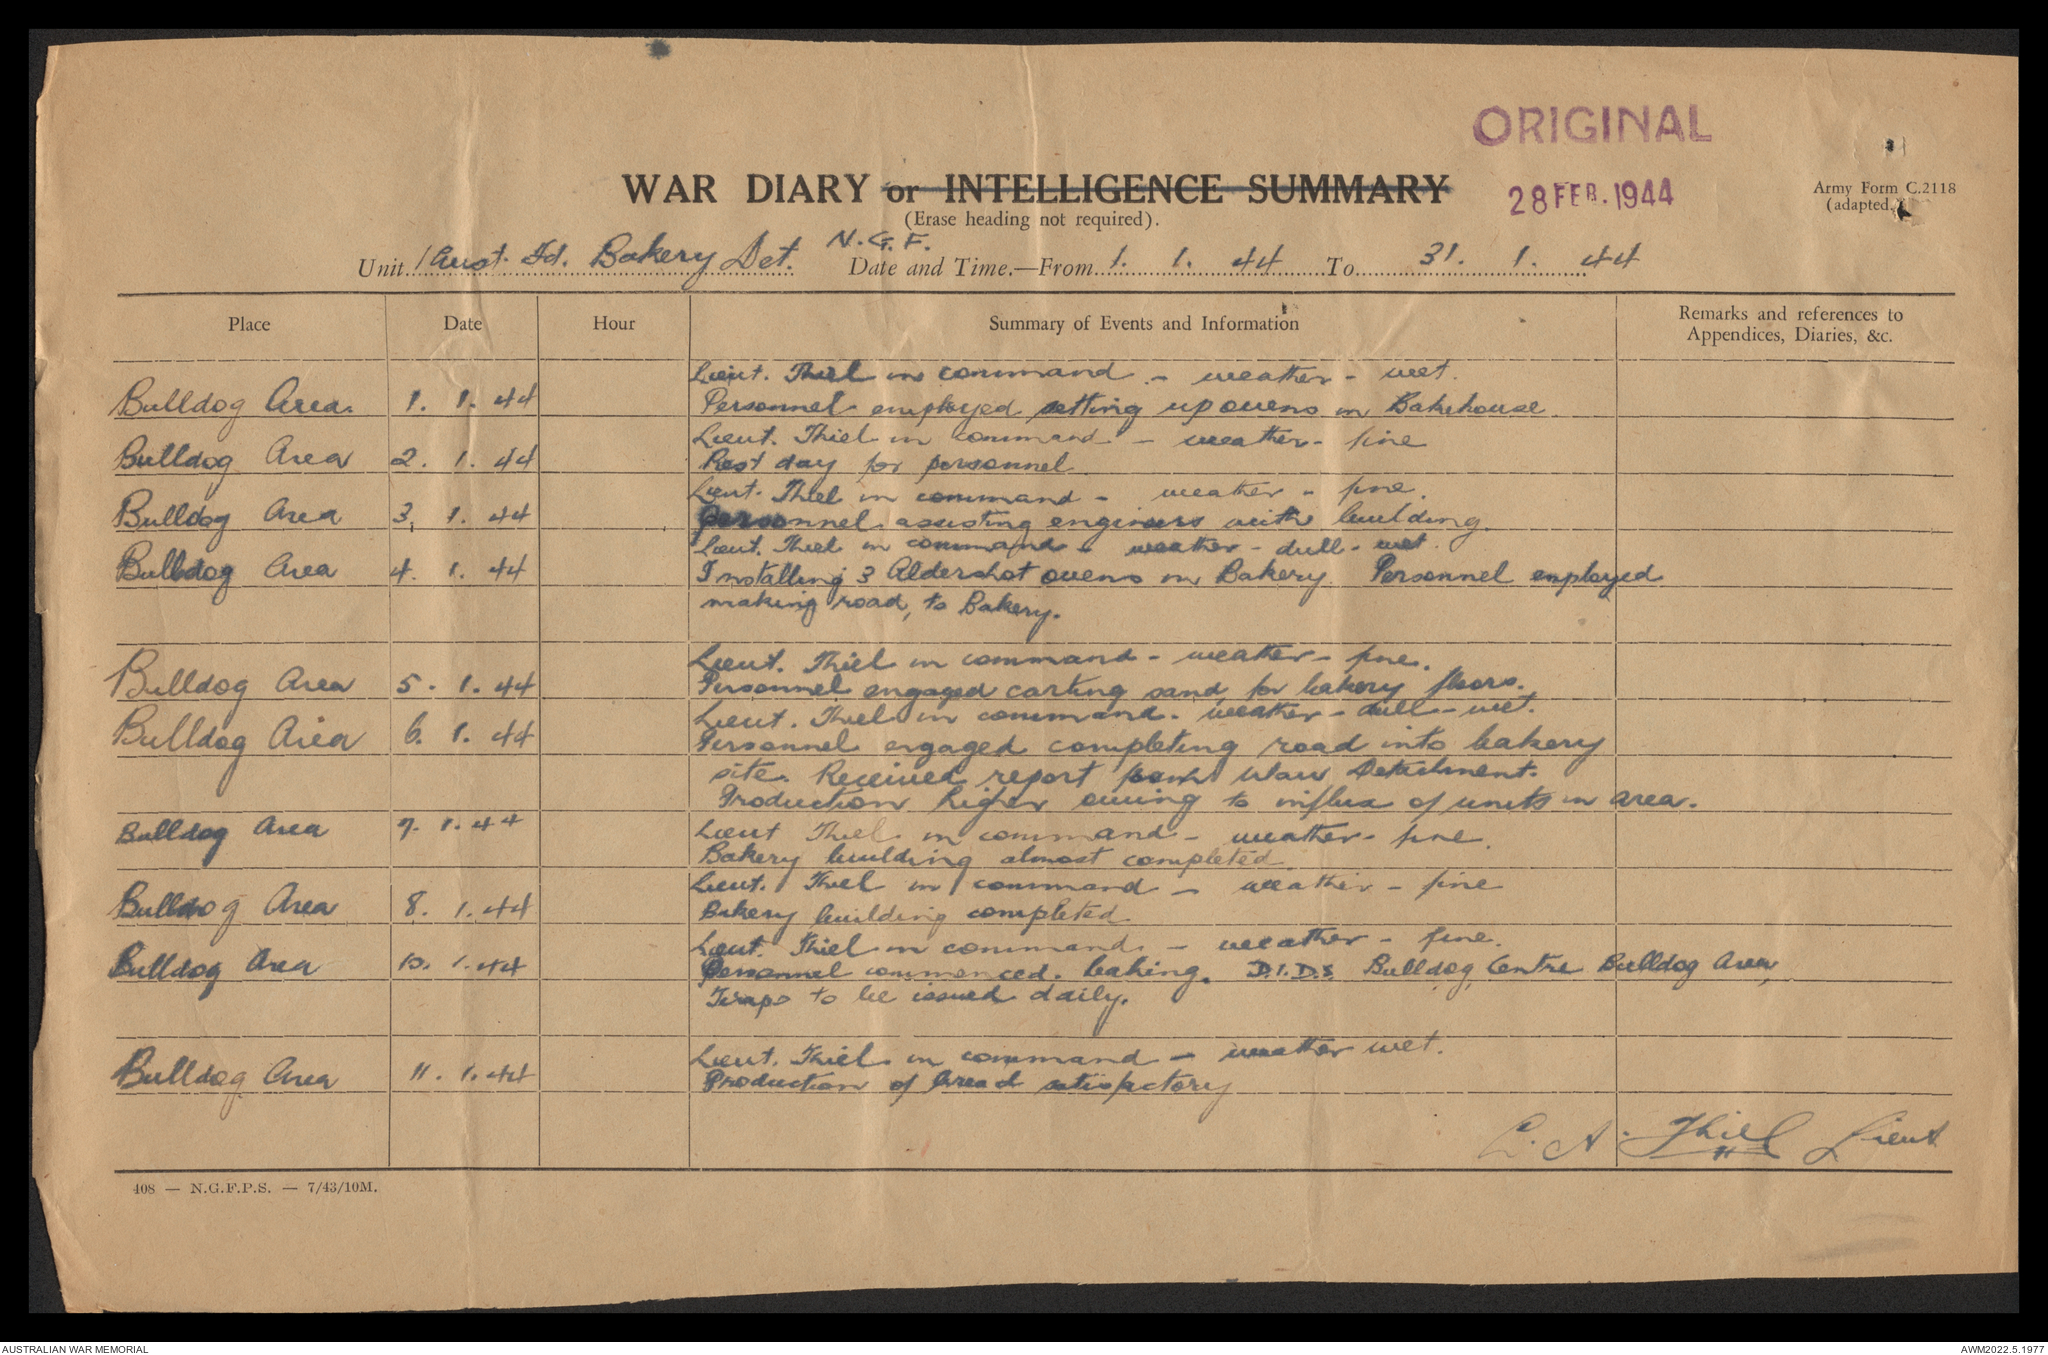 ORIGINAL
WAR DIARY or INTELLIGENCE SUMMARY
28 FEB. 1944
Army Form C.2118
(adapted.)
(Erase heading not required).
Unit 1 Aust. Fd. Bakery Det. N.G.F. Date and Time.—From 1. 1. 44 To 31. 1. 44
Place Date Hour Summary of Events and Information Remarks and references to
Appendices, Diaries, &c.
Lieut. Thiel in command - weather - wet.
Bulldog Area. 1. 1. 44 Personnel employed setting up ovens in Bakehouse.
Lieut. Thiel in command - weather - fine
Bulldog Area 2. 1. 44 Rest day for personnel
Lieut. Thiel in command - weather - fine.
Bulldog Area 3. 1. 44 Personnel assisting engineers with building.
Lieut. Thiel in command - weather - dull - wet.
Bulldog Area 4. 1. 44 Installing 3 Aldershot ovens in Bakery. Personnel employed
making road, to Bakery.
Lieut. Thiel in command - weather - fine.
Bulldog Area 5. 1. 44 Personnel engaged carting sand for bakery floors.
Lieut. Thiel in command. weather - dull - wet.
Bulldog Area 6. 1. 44 Personnel engaged completing road into bakery
site. Received report from Wau Detachment.
Production higher owing to influx of units in area.
Bulldog Area 7. 1. 44 Lieut Thiel in command - weather - fine.
Bakery building almost completed
Lieut. Thiel in command - weather - fine
Bulldog Area 8. 1. 44 Bakery building completed
Lieut. Thiel in command - weather - fine.
Bulldog Area 10. 1. 44 Personnel commenced baking. D.I.D.S. Bulldog, Centre Bulldog Area,
to be issued daily.
Lieut. Thiel in command - weather wet.
Bulldog Area 11. 1. 44 Production of bread satisfactory
C. A. Thiel Lieut
408 — N.G.F.P.S. — 7/43/10M.
AUSTRALIAN WAR MEMORIAL
AWM2022.5.1977